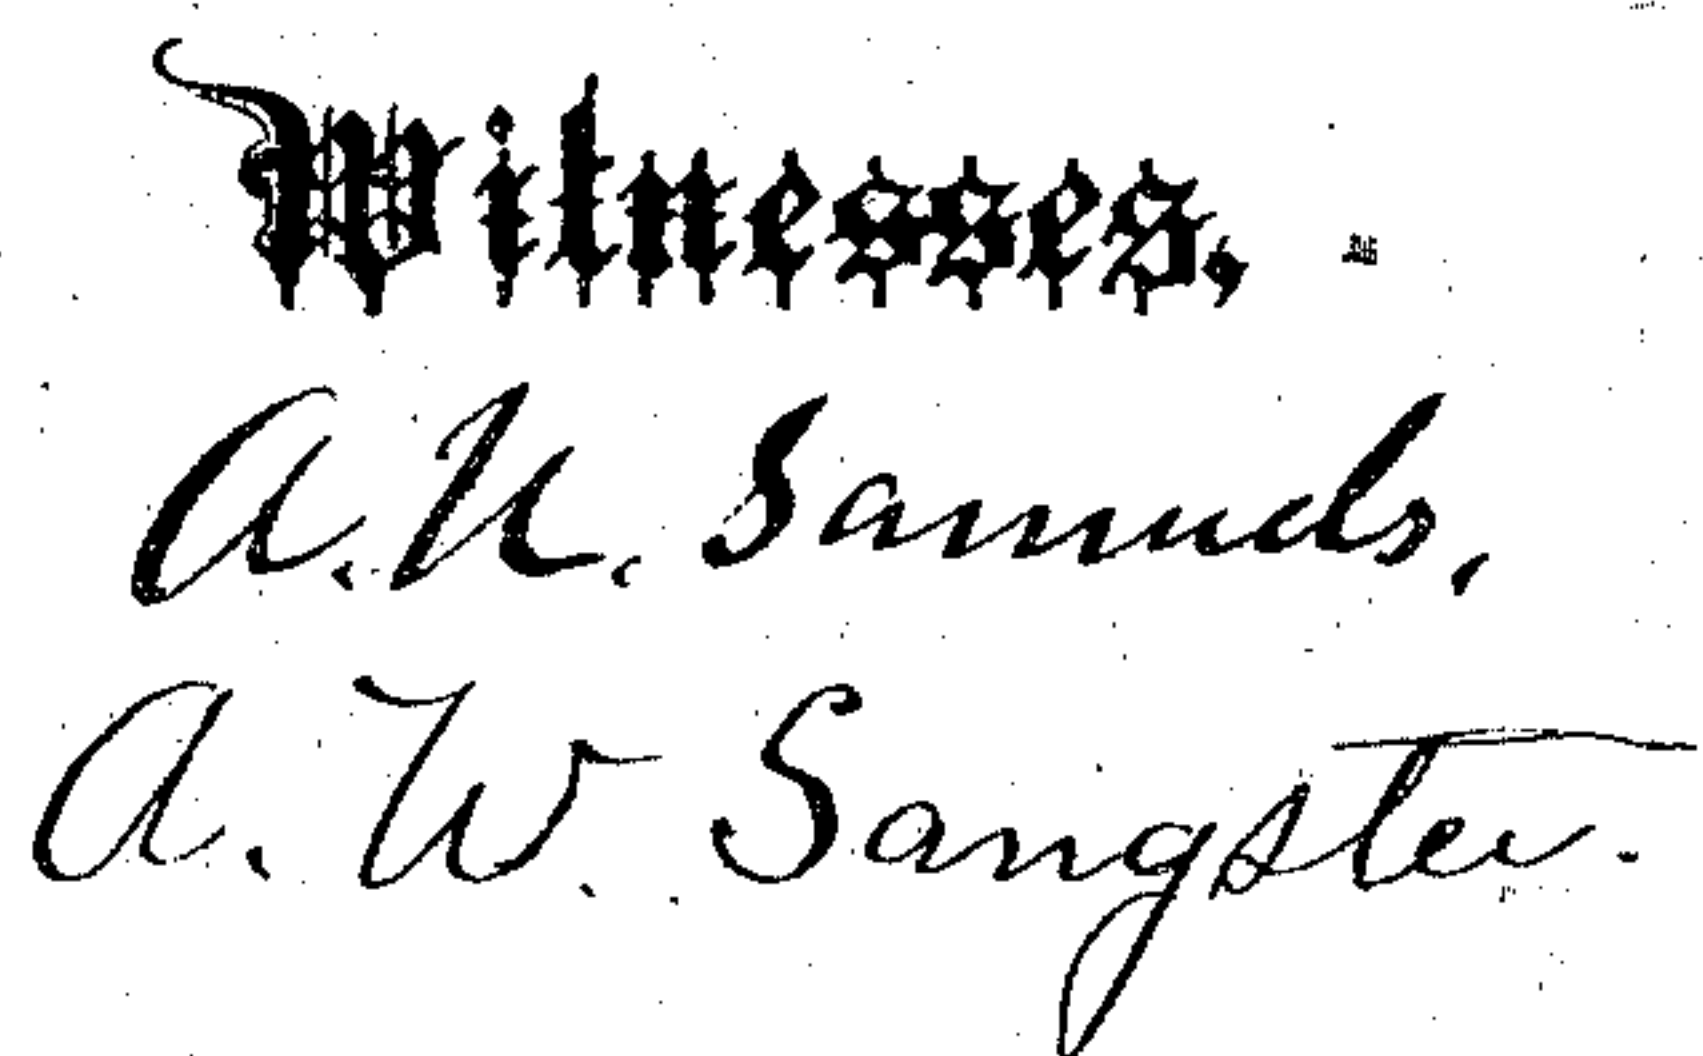 Witnesses,
A. N. Samuels,
A. W. Sangster.